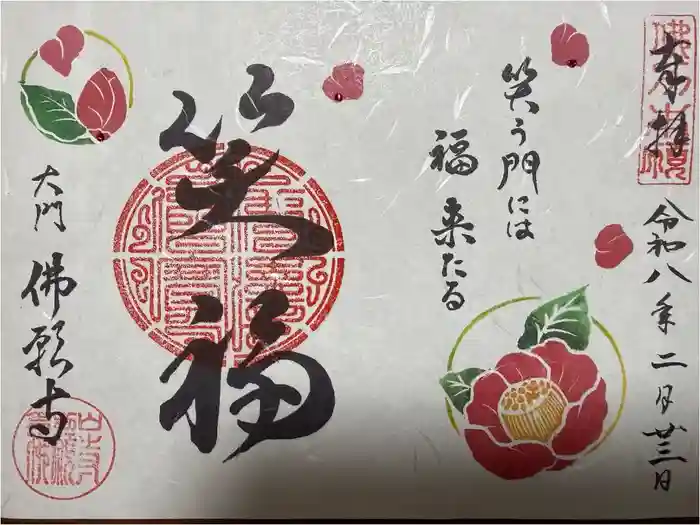 奉拝
令和八年二月廿三日
笑う門には
福来たる
笑福
大門 佛願寺